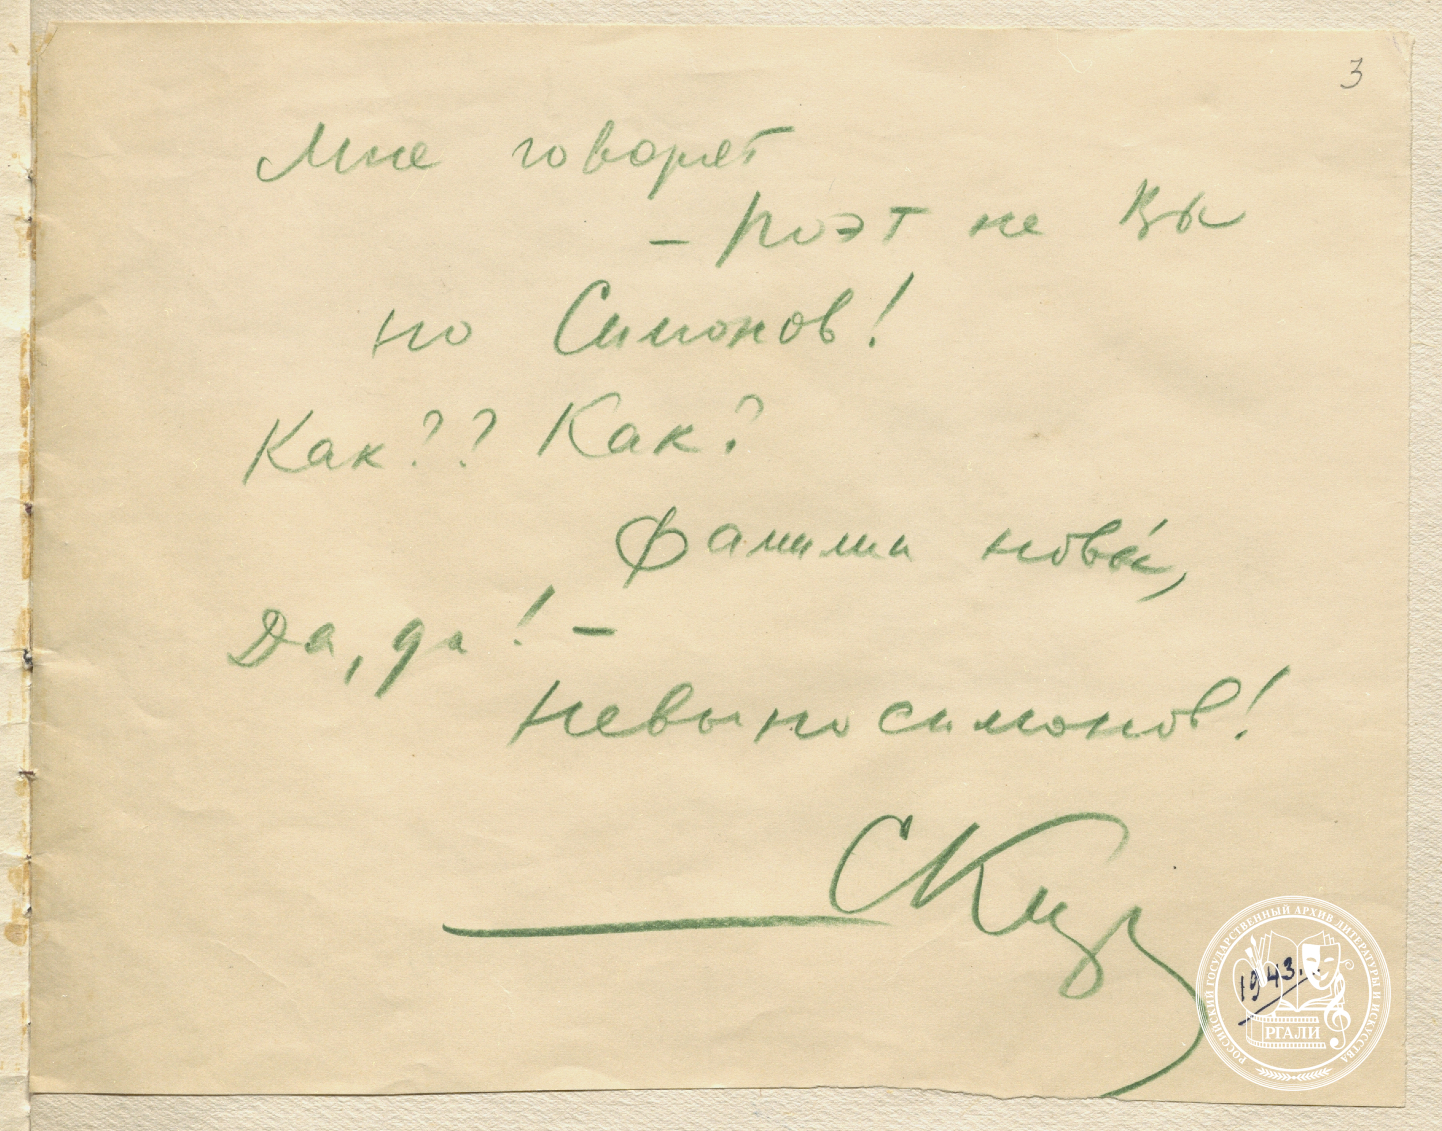 3
Мне говорят
– поэт не Вы
но Симонов!
Как?? Как?
Фамилии новы́,
Да, да! –
Невыносимонов!
СКир
1943.
РОССИЙСКИЙ ГОСУДАРСТВЕННЫЙ АРХИВ ЛИТЕРАТУРЫ И ИСКУССТВА
РГАЛИ